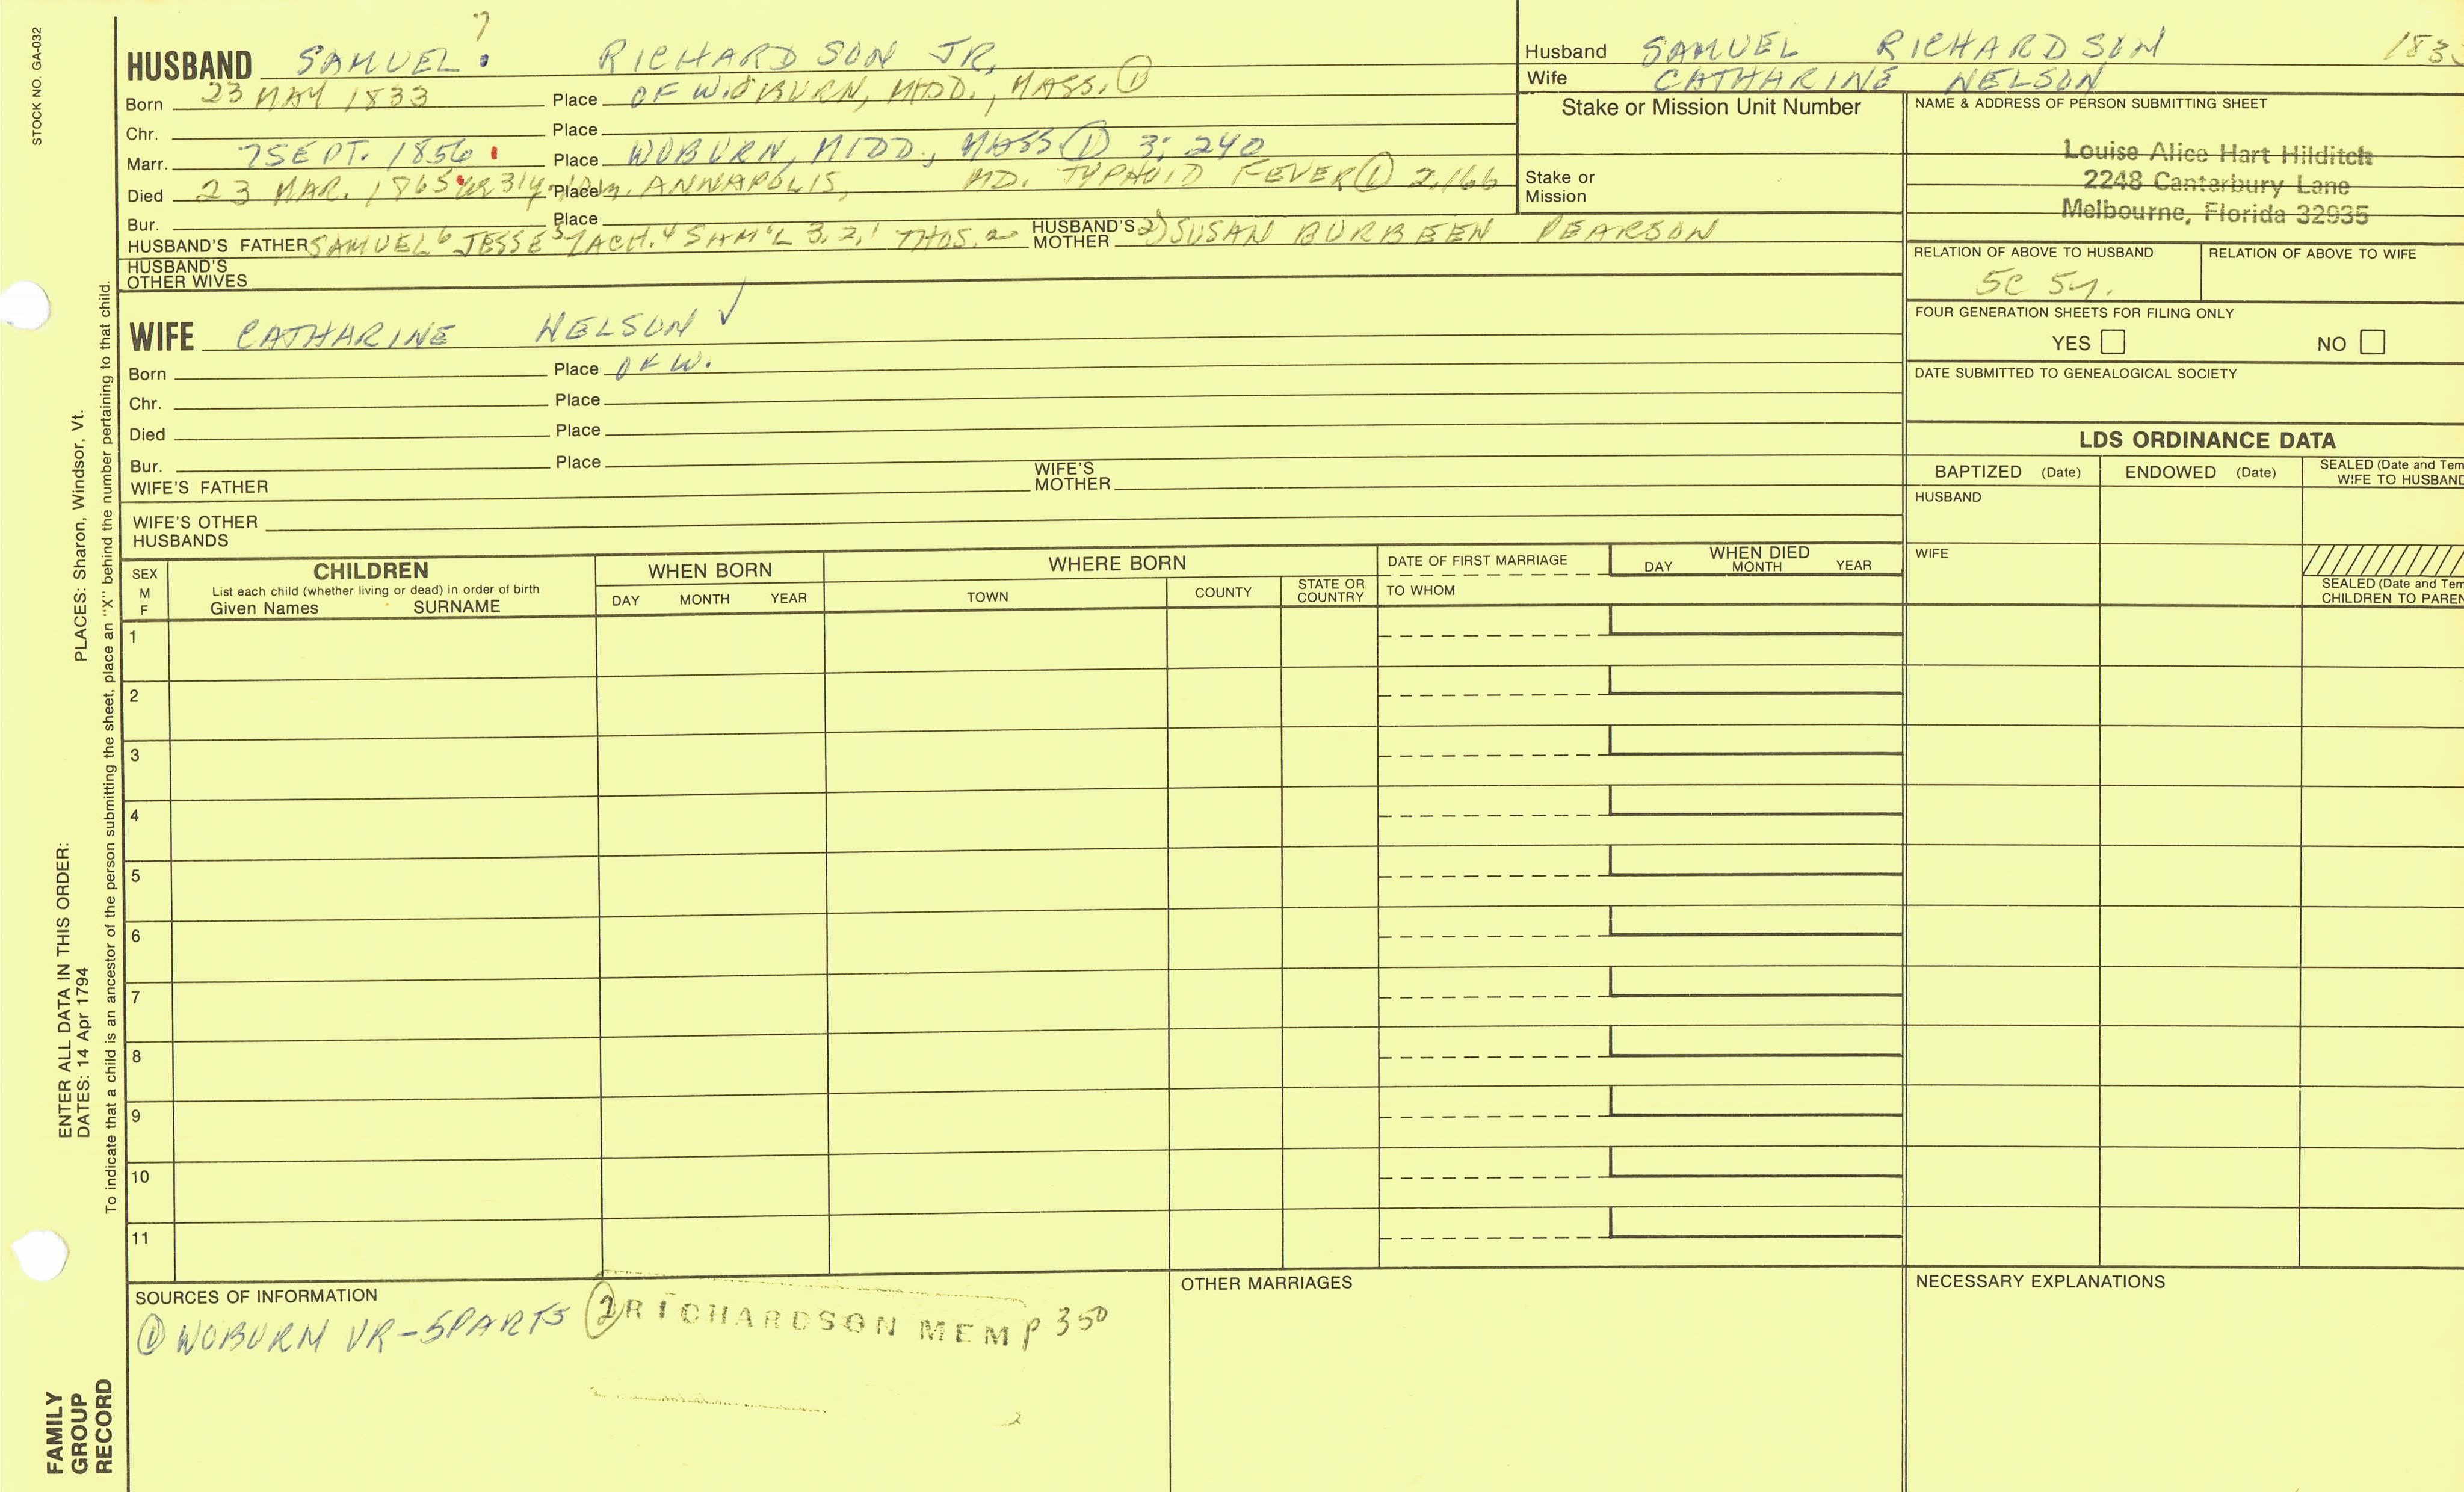 STOCK NO. GA-032
HUSBAND SAMUEL 7 RICHARDSON JR.
Born 23 MAY 1833 Place OF WOBURN, MIDD., MASS. ①
Chr. Place
Marr. 7 SEPT. 1856 Place WOBURN, MIDD., MASS ① 3; 240
Died 23 MAR. 1865 Place ANNAPOLIS, MD. TYPHOID FEVER ① 2,166
Bur. Place
HUSBAND'S FATHER SAMUEL 6 JESSE 5 ZACH. 4 SAM'L 3, 2, 1 THOS. HUSBAND'S MOTHER 2) SUSAN BURBEEN PEARSON
HUSBAND'S OTHER WIVES
WIFE CATHARINE NELSON ✓
Born Place OF W.
Chr. Place
Died Place
Bur. Place
WIFE'S FATHER WIFE'S MOTHER
WIFE'S OTHER HUSBANDS
Husband SAMUEL RICHARDSON 183
Wife CATHARINE NELSON
Stake or Mission Unit Number
Stake or Mission
NAME & ADDRESS OF PERSON SUBMITTING SHEET
Louise Alice Hart Hilditch
2248 Canterbury Lane
Melbourne, Florida 32935
RELATION OF ABOVE TO HUSBAND RELATION OF ABOVE TO WIFE
5C
FOUR GENERATION SHEETS FOR FILING ONLY
YES NO
DATE SUBMITTED TO GENEALOGICAL SOCIETY
LDS ORDINANCE DATA
BAPTIZED (Date) ENDOWED (Date) SEALED (Date and Tem
WIFE TO HUSBAND
HUSBAND
WIFE
SEALED (Date and Tem
CHILDREN TO PAREN
SEX
M
F
CHILDREN
List each child (whether living or dead) in order of birth
Given Names SURNAME
WHEN BORN
DAY MONTH YEAR
WHERE BORN
TOWN COUNTY STATE OR COUNTRY
DATE OF FIRST MARRIAGE
TO WHOM
WHEN DIED
DAY MONTH YEAR
1
2
3
4
5
6
7
8
9
10
11
SOURCES OF INFORMATION
① WOBURN VR-5PARTS ② RICHARDSON MEM P 350
OTHER MARRIAGES
NECESSARY EXPLANATIONS
PLACES: Sharon, Windsor, Vt.
ENTER ALL DATA IN THIS ORDER:
DATES: 14 Apr 1794
To indicate that a child is an ancestor of the person submitting the sheet, place an "X" behind the number pertaining to that child.
FAMILY
GROUP
RECORD